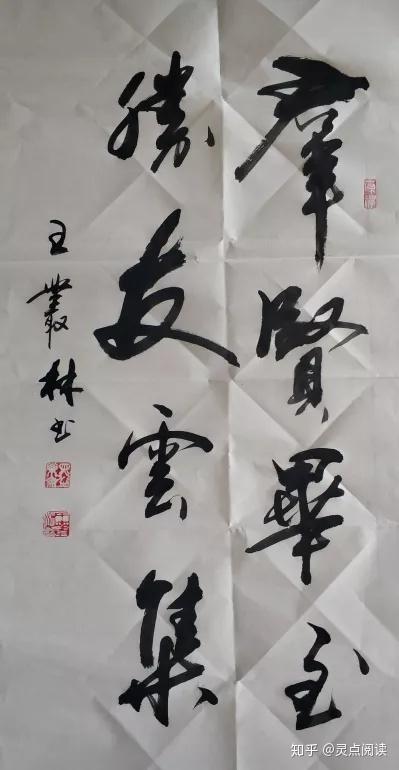 羣賢畢至
勝友雲集
王叢林书
知乎 @灵点阅读